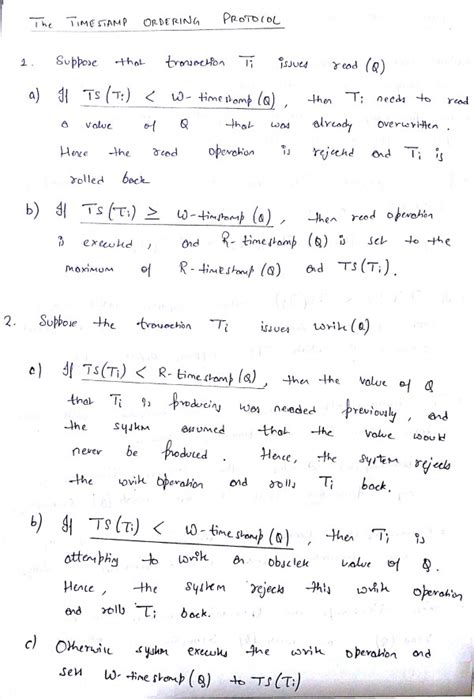 The TIMESTAMP ORDERING PROTOCOL
1. Suppose that transaction Ti issues read (Q)
a) If TS(Ti) < W-timestamp(Q), then Ti needs to read
a value of Q that was already overwritten.
Hence the read operation is rejected and Ti is
rolled back
b) If TS(Ti) ≥ W-timstamp(Q), then read operation
is executed, and R-timestamp (Q) is set to the
maximum of R-timestamp(Q) and TS(Ti).
2. Suppose the transaction Ti issues write(Q)
a) If TS(Ti) < R-timestamp(Q), then the value of Q
that Ti is producing was needed previously, and
the system assumed that the value would
never be produced. Hence, the system rejects
the write operation and rolls Ti back.
b) If TS(Ti) < W-timestamp(Q), then Ti is
attempting to write an obsolete value of Q.
Hence, the system rejects this write operation
and rolls Ti back.
c) Otherwise system executes the write operation and
sets W-timestamp(Q) to TS(Ti)